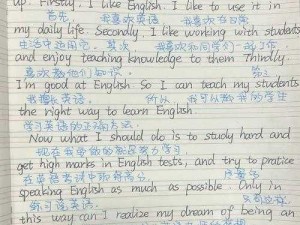 up. Firstly. I like English. I like to use it in
首先 我喜欢英语 我喜欢在日常
my daily life. Secondly. I like working with students
生活中使用它 其次 我喜欢和同学们
and enjoy teaching knowledge to them Thindly.
喜欢教他们知识 第三
I'm good at English. So I can teach my students
我擅长英语 所以 我可以教我的学生
the right way to learn English.
学习英语的正确方法
Now what I should do is to study hard and
现在 学习
get high marks in English tests, and try to protice
在英语考试中取得高分
speaking English as much as possible Only in
练习说英语
this way can I realize my dream of being an